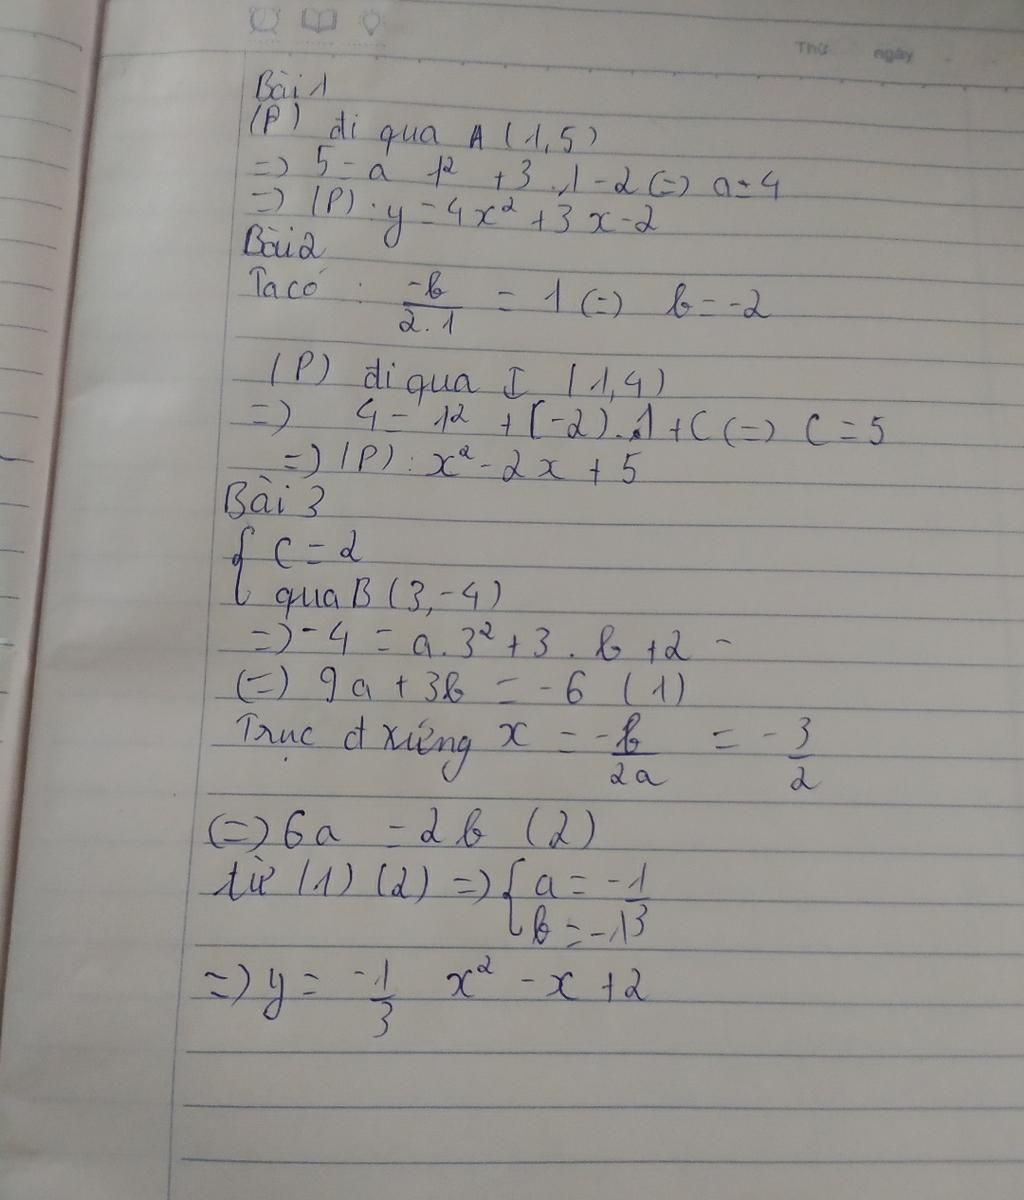 Thứ ngày
Bài 1
(P) đi qua A (1,5)
=) 5 = a 1² + 3 . 1 - 2 (=) a = 4
=) (P) : y = 4x² + 3x - 2
Bài 2
Ta có : -b/2.1 = 1 (=) b = -2
(P) đi qua I (1,4)
=) 4 = 1² + (-2) . 1 + C (=) C = 5
=) (P) : x² - 2x + 5
Bài 3
{ C = 2
qua B (3, -4)
=) -4 = a . 3² + 3 . b + 2 -
(=) 9a + 3b = -6 (1)
Trục đ xứng x = -b/2a = -3/2
(=) 6a = 2b (2)
từ (1) (2) =) { a = -1/3
b = -1
=) y = -1/3 x² - x + 2